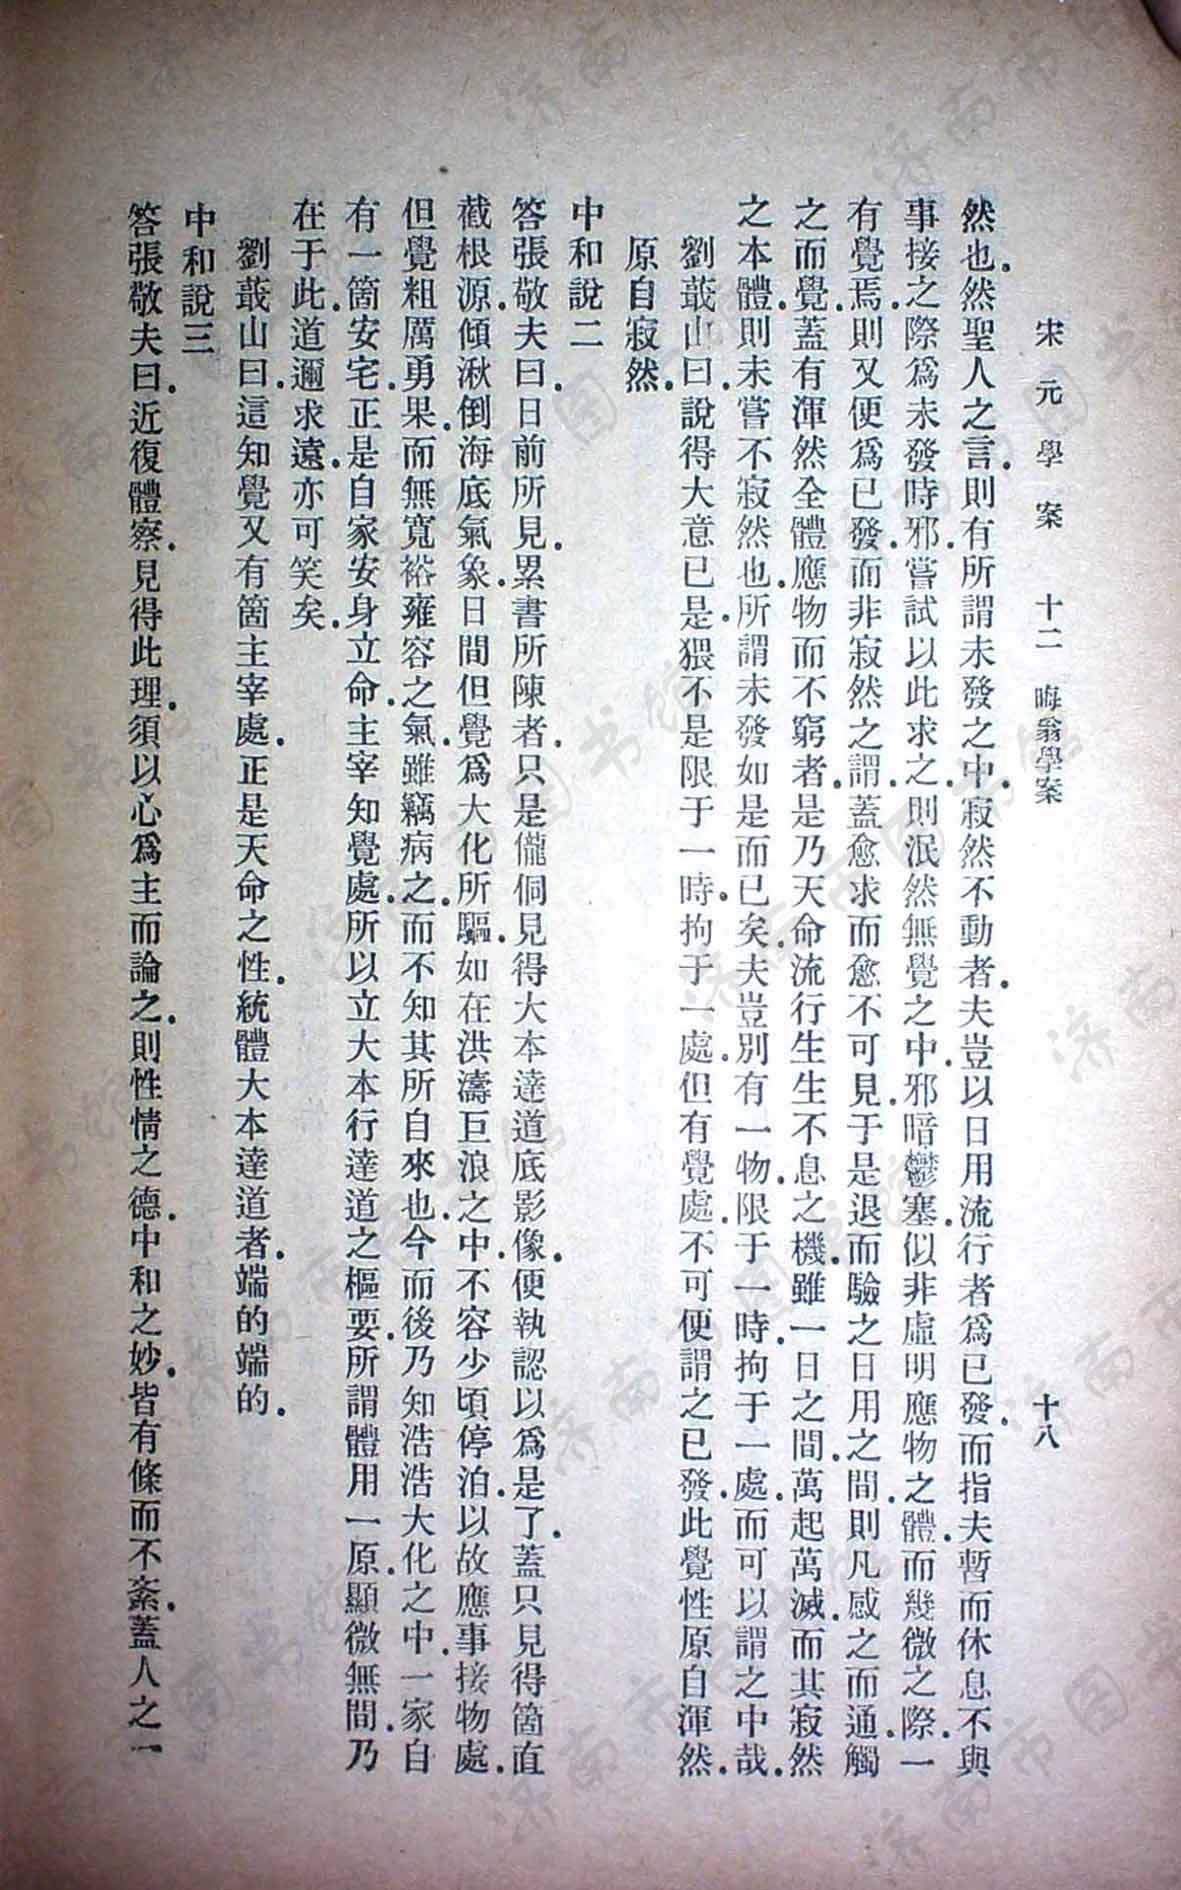 宋元學案 十二 晦翁學案 十八
然也.然聖人之言.則有所謂未發之中.寂然不動者.夫豈以日用流行者爲已發.而指夫暫而休息不與
事接之際爲未發時邪.嘗試以此求之.則泯然無覺之中.邪暗鬱塞.似非虛明應物之體.而幾微之際.一
有覺焉.則又便爲已發.而非寂然之謂.蓋愈求而愈不可見.于是退而驗之日用之間.則凡感之而通.觸
之而覺.蓋有渾然全體應物而不窮者.是乃天命流行生生不息之機.雖一日之間萬起萬滅.而其寂然
之本體.則未嘗不寂然也.所謂未發如是而已矣.夫豈別有一物.限于一時.拘于一處.而可以謂之中哉.
劉蕺山曰.說得大意已是.猥不是限于一時.拘于一處.但有覺處.不可便謂之已發.此覺性原自渾然.
原自寂然.
中和說二
答張敬夫曰.日前所見.累書所陳者.只是儱侗見得大本達道底影像.便執認以爲是了.蓋只見得箇直
截根源.傾湫倒海底氣象.日間但覺爲大化所驅.如在洪濤巨浪之中.不容少頃停泊.以故應事接物處.
但覺粗厲勇果.而無寬裕雍容之氣.雖竊病之.而不知其所自來也.今而後乃知浩浩大化之中.一家自
有一箇安宅.正是自家安身立命.主宰知覺處.所以立大本行達道之樞要.所謂體用一原.顯微無間.乃
在于此.道邇求遠.亦可笑矣.
劉蕺山曰.這知覺又有箇主宰處.正是天命之性.統體大本達道者.端的端的.
中和說三
答張敬夫曰.近復體察.見得此理.須以心爲主而論之.則性情之德.中和之妙.皆有條而不紊.蓋人之一